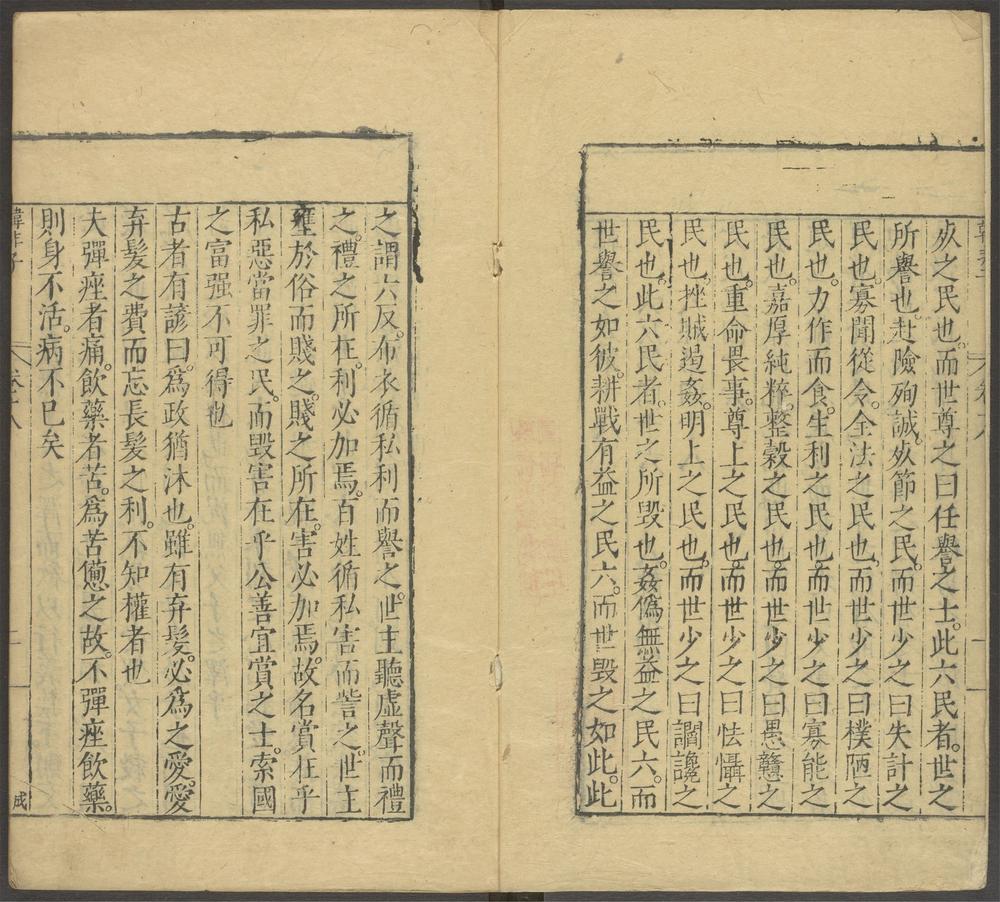 死之民也。而世尊之曰任譽之士。此六民者。世之
所譽也赴險殉誠。死節之民。而世少之曰失計之
民也。寡聞從令。全法之民也。而世少之曰樸陋之
民也。力作而食。生利之民也。而世少之曰寡能之
民也。嘉厚純粹。整穀之民也。而世少之曰愚戇之
民也。重命畏事。尊上之民也。而世少之曰怯懾之
民也。挫賊遏姦。明上之民也。而世少之曰讇讒之
民也。此六民者。世之所毀也。姦僞無益之民六。而
世譽之如彼。耕戰有益之民六。而世毀之如此。此
之謂六反。布衣循私利而譽之。世主聽虛聲而禮
之。禮之所在。利必加焉。百姓循私害而訾之。世主
壅於俗而賤之。賤之所在。害必加焉。故名賞在乎
私惡當罪之民。而毀害在乎公善宜賞之士。索國
之富强不可得也
古者有諺曰。爲政猶沐也。雖有弃髮。必爲之愛愛
弃髮之費而忘長髮之利。不知權者也
夫彈痤者痛。飲藥者苦。爲苦憊之故。不彈痤飲藥。
則身不活。病不已矣
韓非子
卷十八
二
成